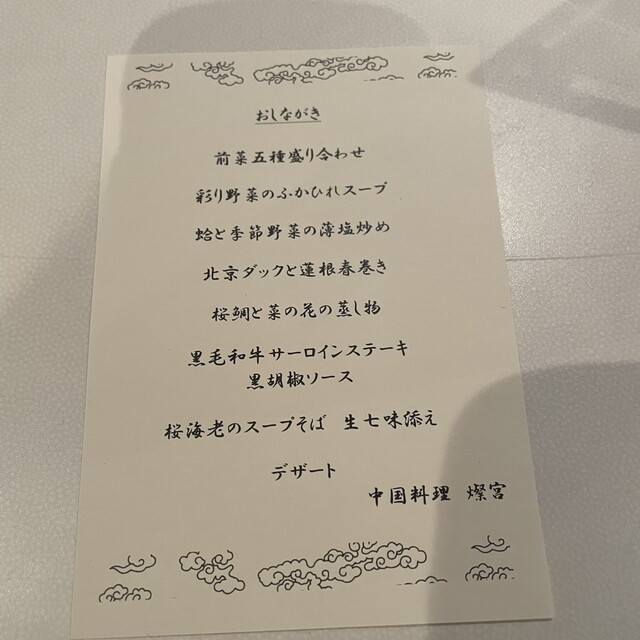 おしながき
前菜五種盛り合わせ
彩り野菜のふかひれスープ
蛤と季節野菜の薄塩炒め
北京ダックと蓮根春巻き
桜鯛と菜の花の蒸し物
黒毛和牛サーロインステーキ
黒胡椒ソース
桜海老のスープそば 生七味添え
デザート
中国料理 燦宮